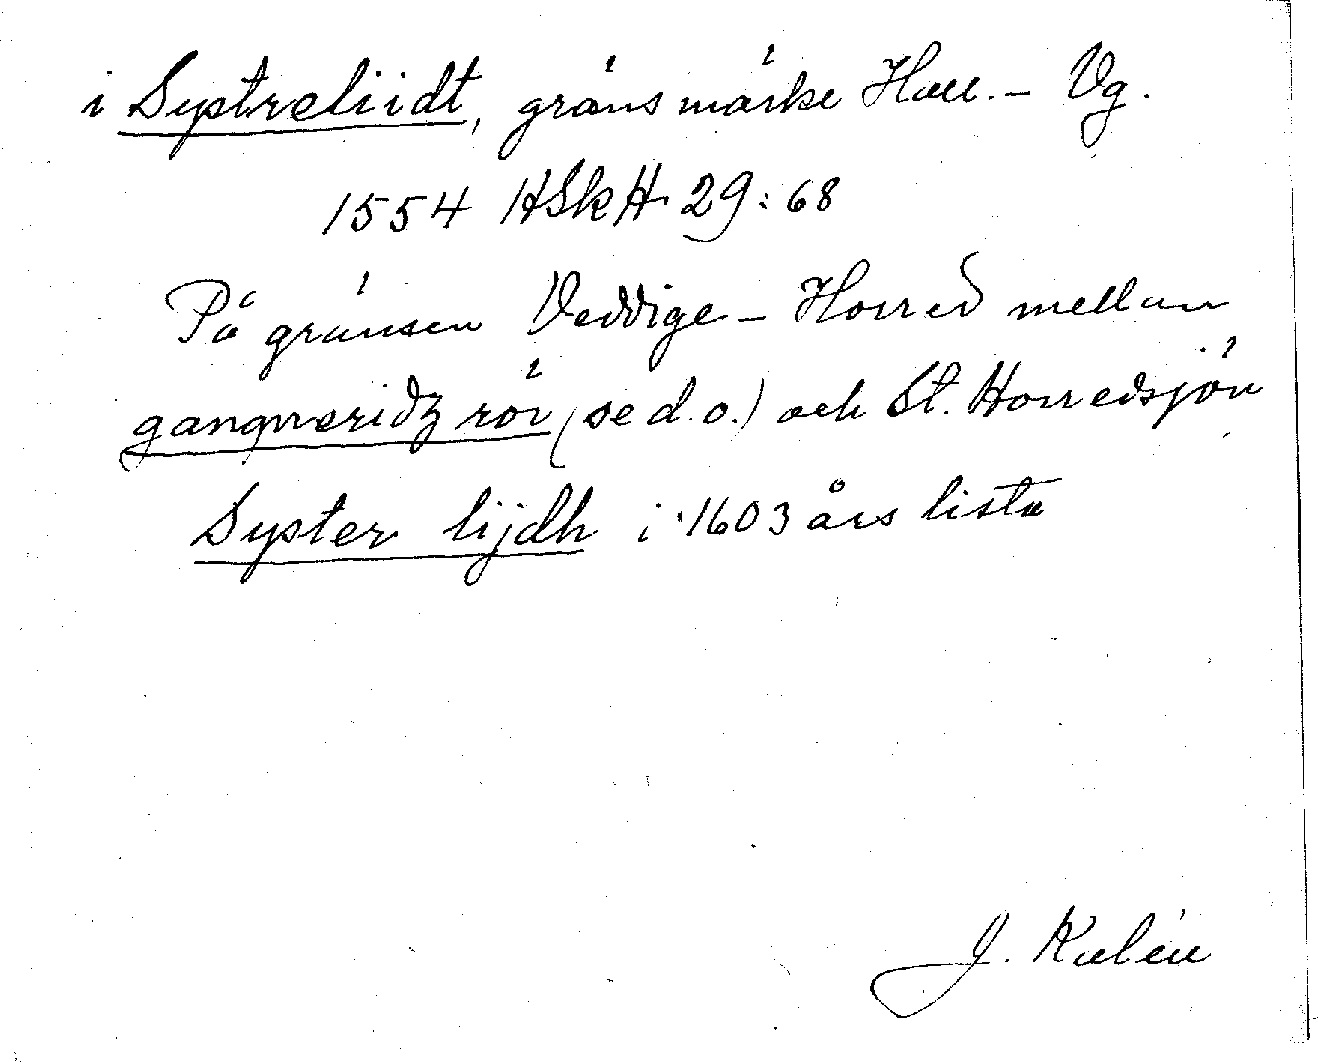 i Systreliidt, gränsmärke Hall. - Vg.
1554 HSkH 29:68
På gränsen Veddige - Horred mellan
gangneridz rör (se d.o.) och St. Horredsjön
Syster lijdh i 1603 års lista
J. Kalén